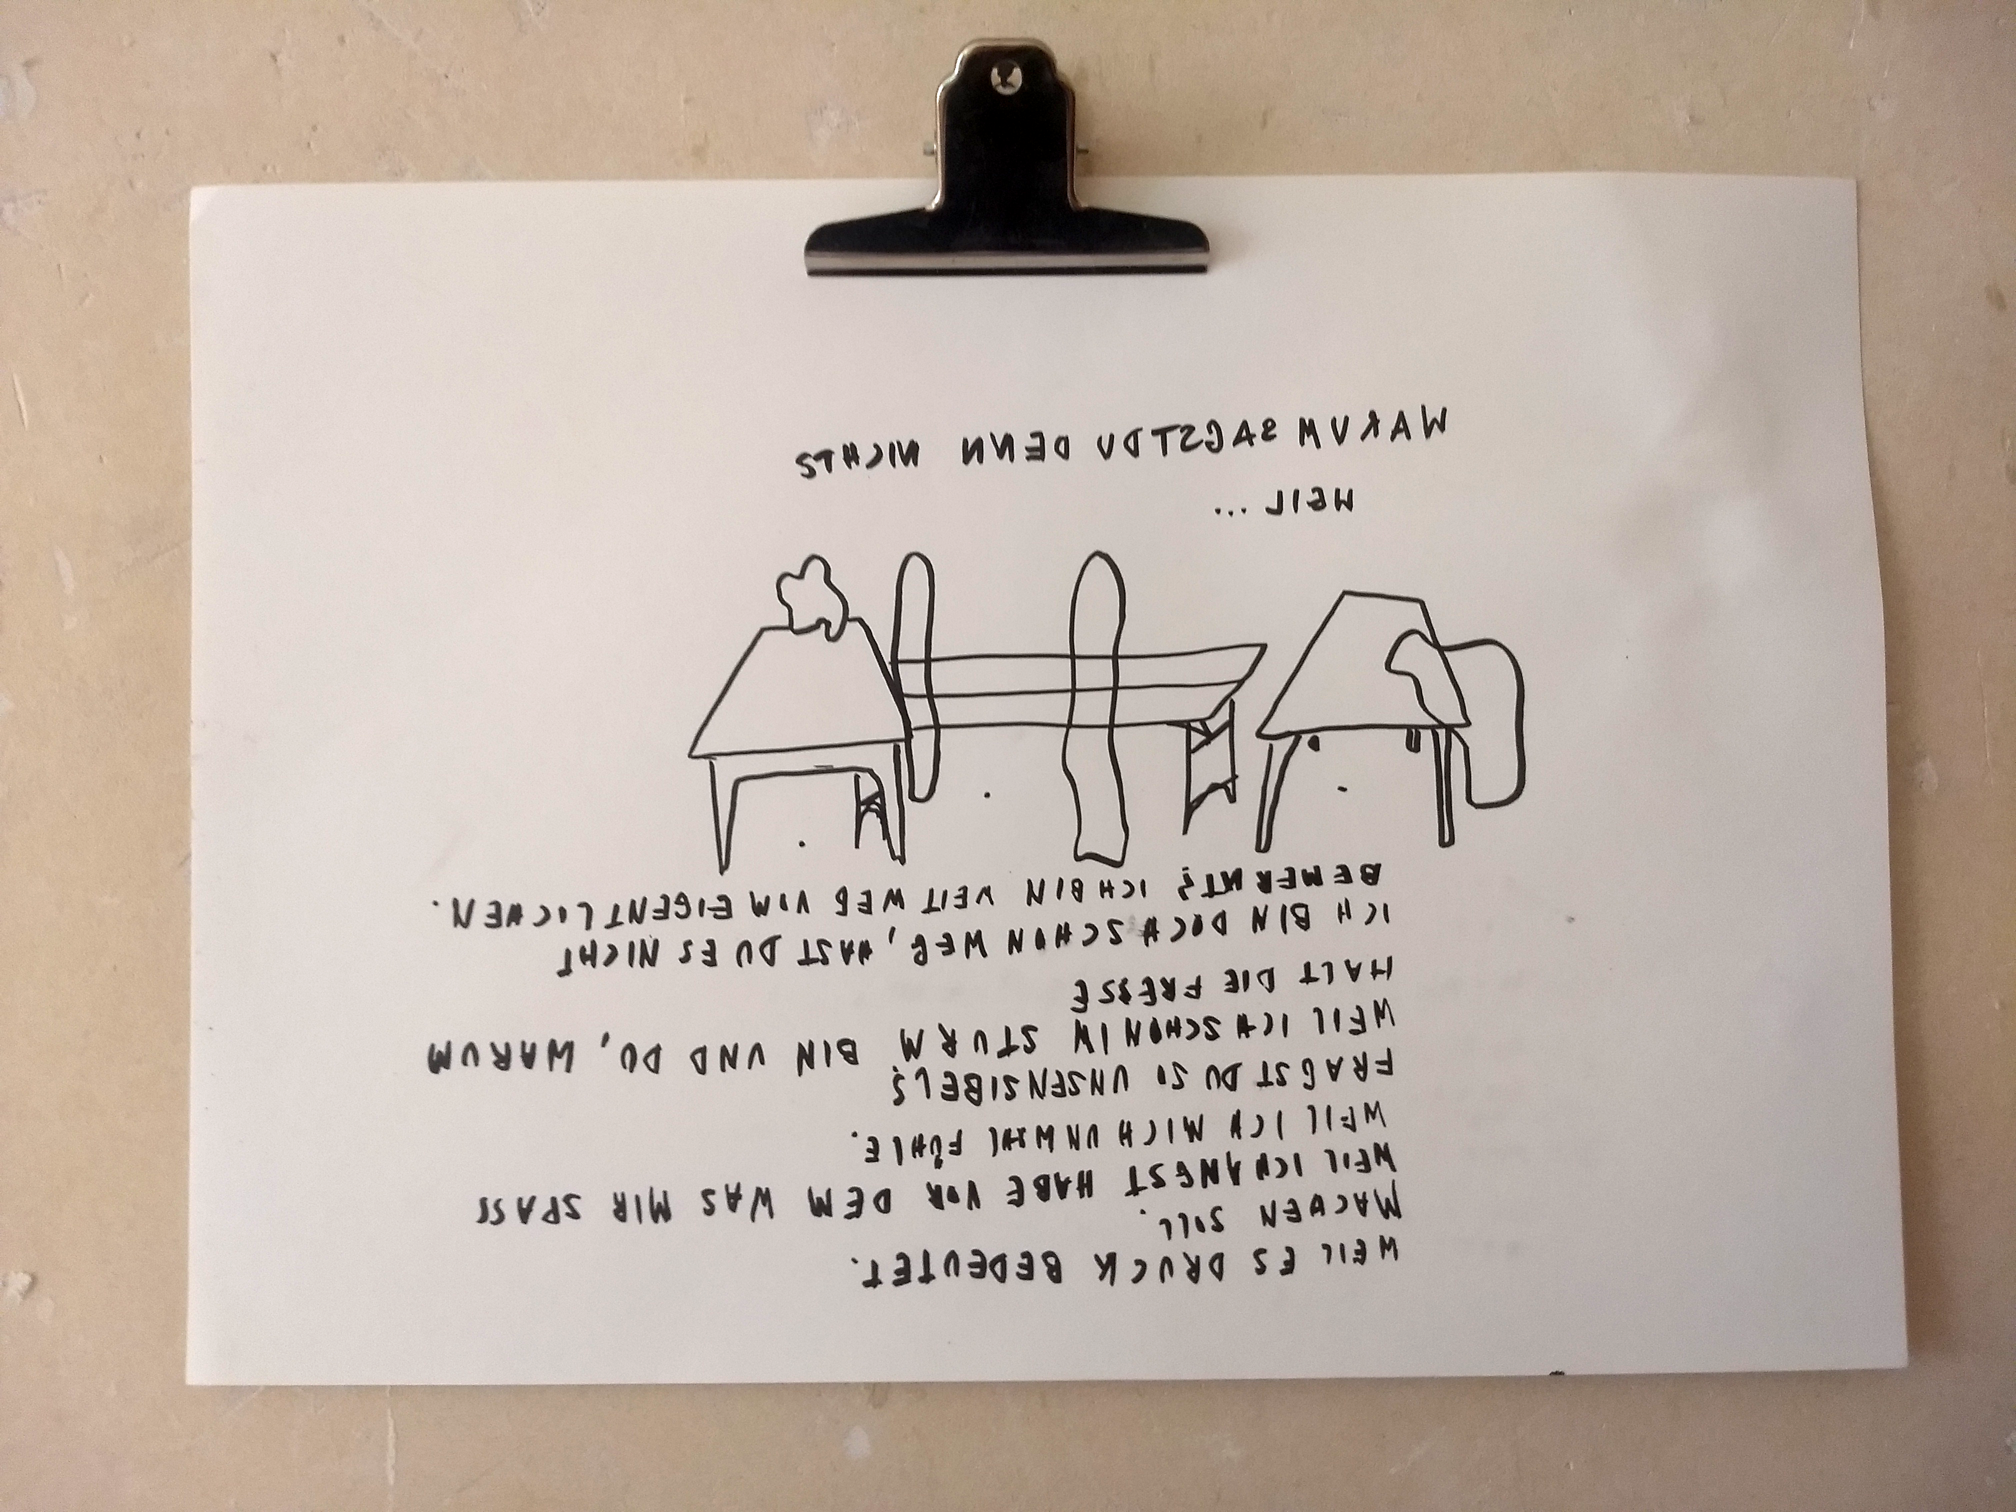 WARUM SAGST DU DENN NICHTS
WEIL ...
BEMERKT? ICH BIN WEIT WEG VOM EIGENTLICHEN.
ICH BIN DOCH SCHON WEG, HAST DU ES NICHT
HALT DIE FRESSE
WEIL ICH SCHON IM STURM BIN UND DU, WARUM
FRAGST DU SO UNSENSIBEL?
WEIL ICH MICH UNWOHL FÜHLE.
WEIL ICH ANGST HABE VOR DEM WAS MIR SPASS
MACHEN SOLL.
WEIL ES DRUCK BEDEUTET.